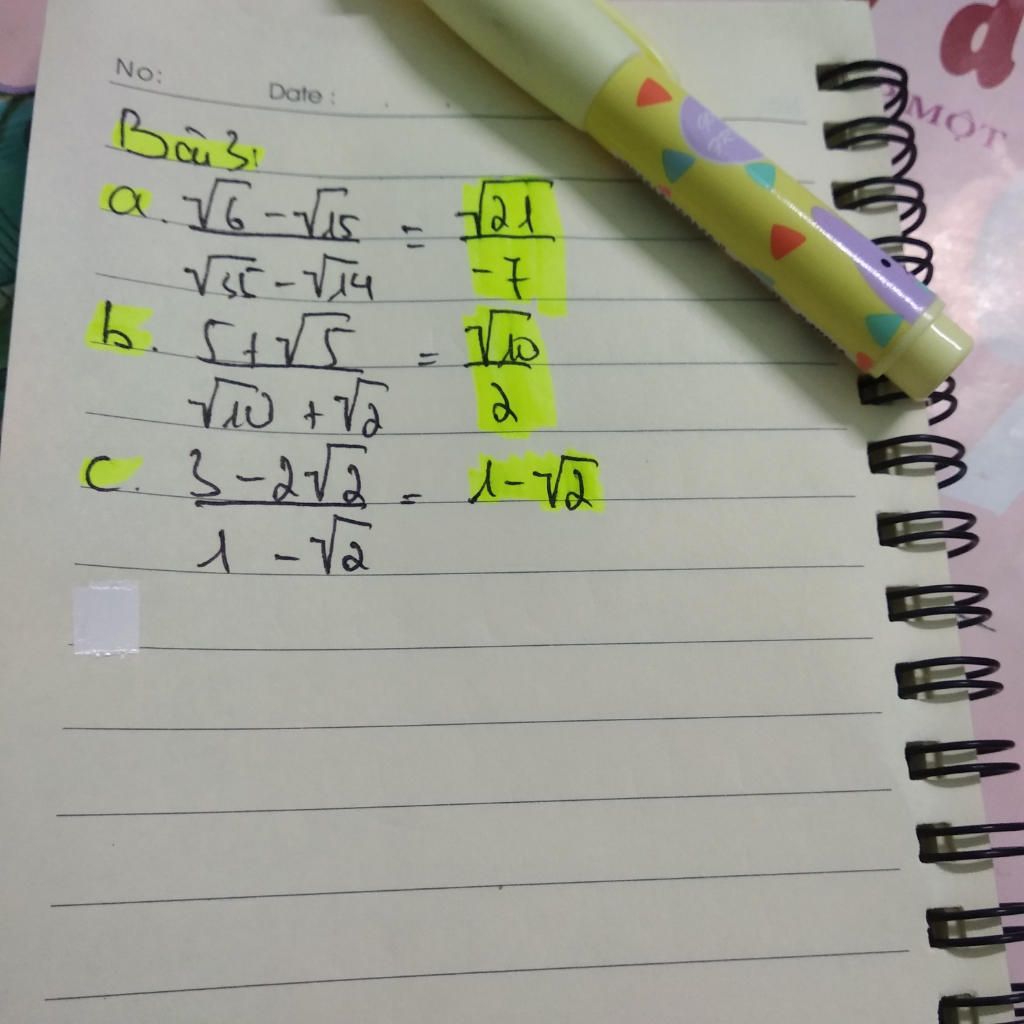 No:
Date :
Bài 3:
a. √6 - √15 / √35 - √14 = √21 / -7
b. 5 + √5 / √10 + √2 = √10 / 2
c. 3 - 2√2 / 1 - √2 = 1 - √2
MỘT